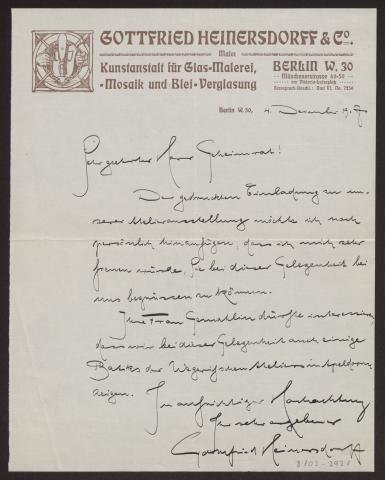 GOTTFRIED HEINERSDORFF & Co.
Maler
Kunstanstalt für Glas-Malerei,
Mosaik und Blei-Verglasung
BERLIN W. 30
Münchenerstrasse
am Viktoria-Luiseplatz
Fernsprech-Anschl.: Amt VI, No. 7256
Berlin W. 30, 4. Dezember 1907
Sehr geehrter Herr Geheimrat!
Der gedruckten Einladung zu un-
serer Atelierausstellung möchte ich noch
persönlich hinzufügen, dass ich mich sehr
freuen würde, Sie bei dieser Gelegenheit bei
uns begrüssen zu können.
Ihre Frau Gemahlin dürfte interessieren,
dass wir bei dieser Gelegenheit auch einige
Batiks des Wegerif'schen Ateliers in Apeldoorn
zeigen.
In aufrichtiger Hochachtung
Ihr sehr ergebener
Gottfried Heinersdorff